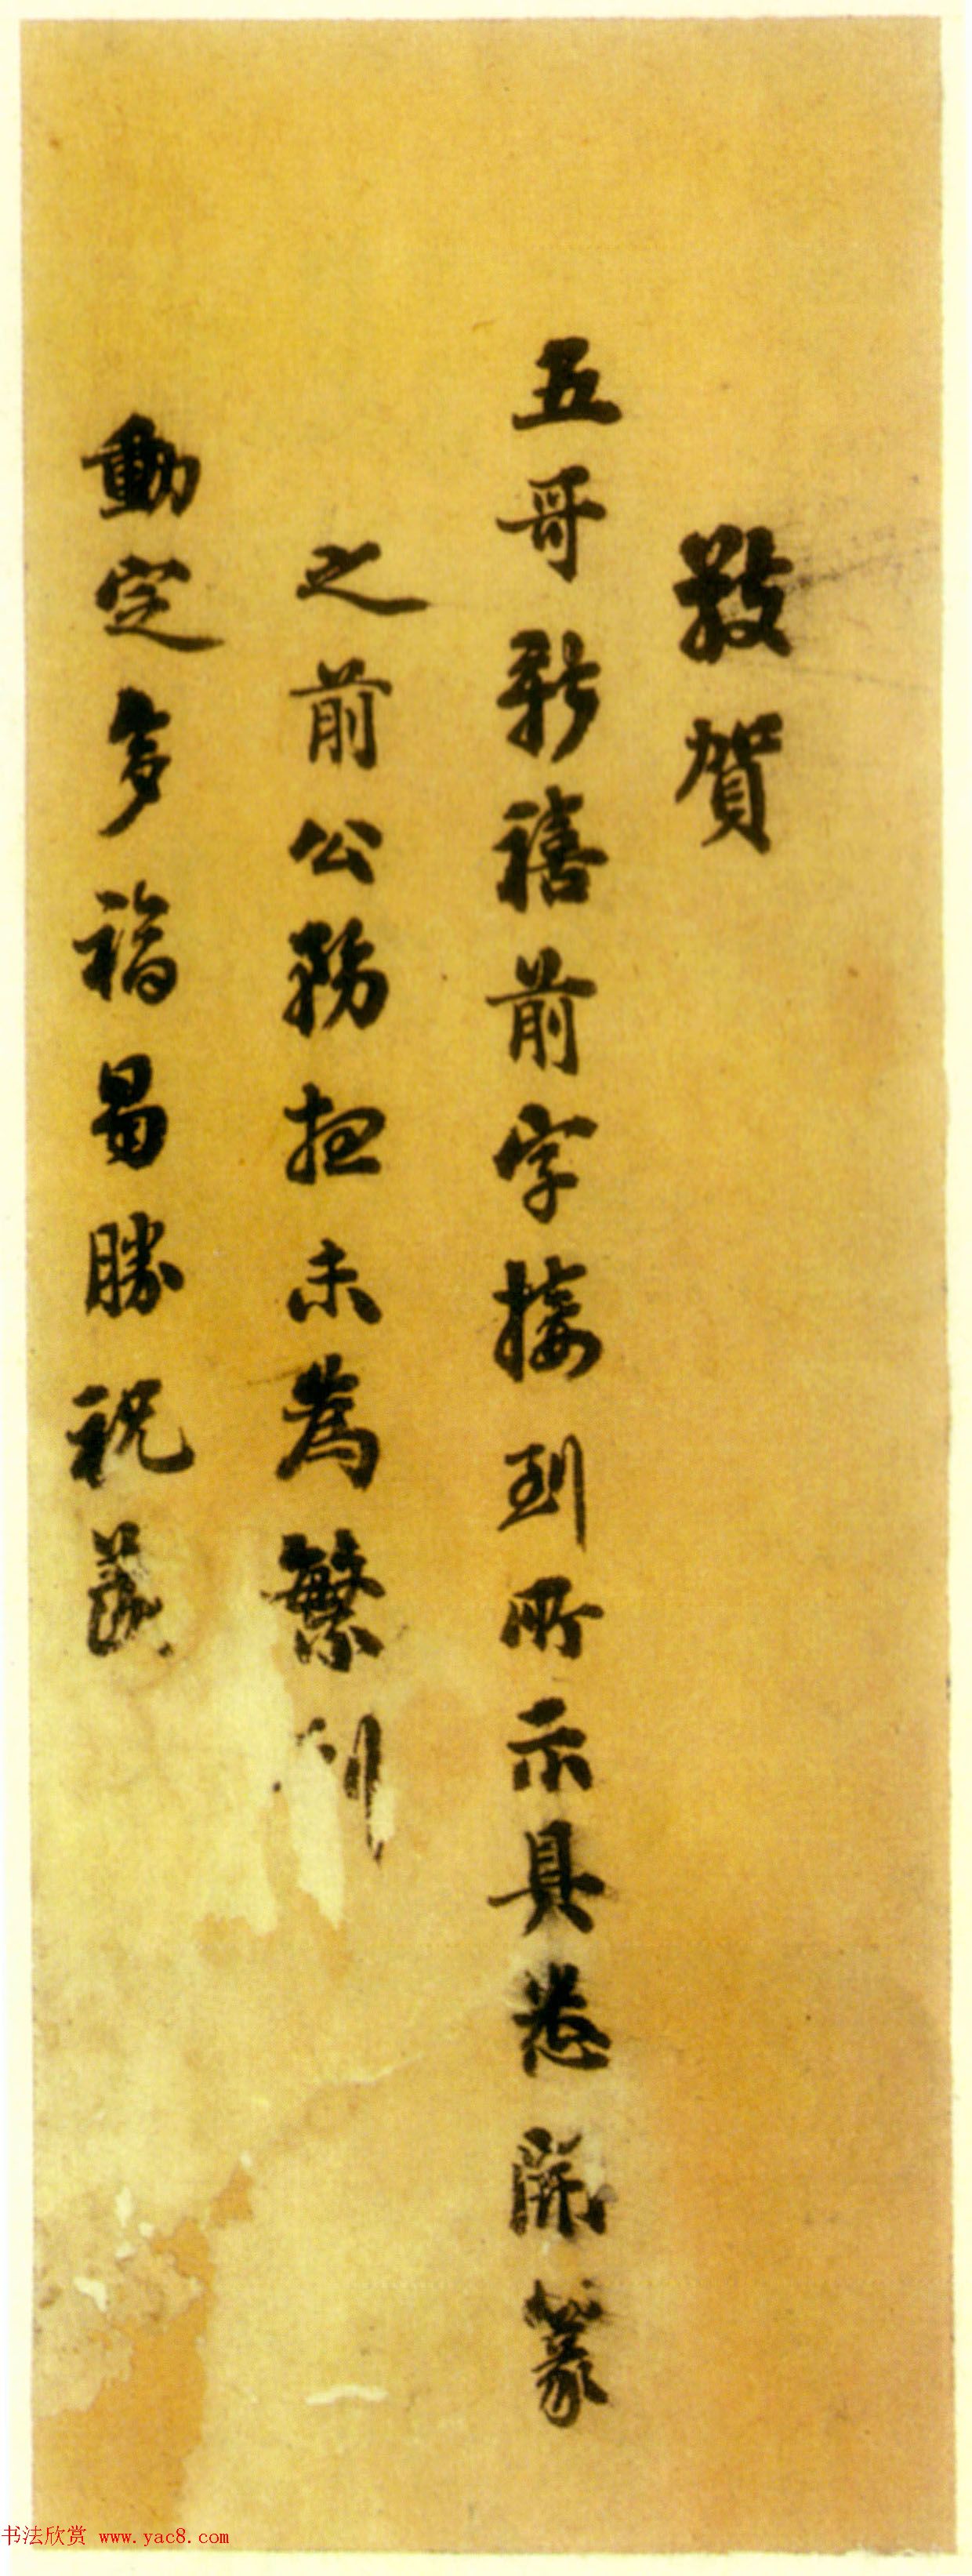 敬賀
五哥新禧前字接到所示具悉 篆
之前公務担未為繁
動定多福曷勝祝
书法欣赏 www.yac8.com